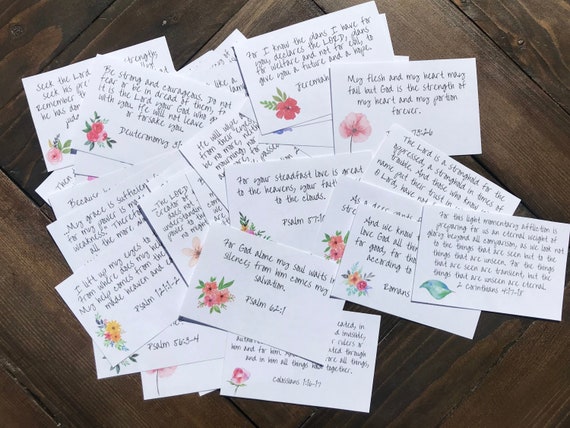 Seek the Lord
strengths
seek his pre
Remember
he has don
Be strong and courageous. Do not
fear or be in dread of them, f
it is the Lord your God who g
with you. He will not leave
or forsake you.
Deuteronomy 31
like a
For I know the plans I have for
you, declares the LORD, plans
for welfare and not for evil, to
give you a future and a hope.
Jeremiah
My flesh and my heart may
fail but God is the strength of
my heart and my portion
forever.
73:26
He will wipe
from their eye
be no more
mourning
Because
My grace is suffici
for my power is ma
weakness." Therefor
all the more
The LORD
creator
does not
understandin
power to the
For your steadfast love is great
to the heavens, your fait
to the clouds.
Psalm 57:1
The Lord is a stronghold for the
oppressed, a stronghold in times of
trouble. And those who know your
name put their trust in you, fo
O Lord, have not
And we know
love God all th
for good, for th
according to
Romans
For this light momentary affliction is
preparing for us an eternal weight of
glory beyond all comparison, as we look not
to the things that are seen but to the
things that are unseen. For the things
that are seen are transient, but the
things that are unseen are eternal.
2 Corinthians 4:17-18
I lift up my eyes to
From where does my help
My help comes from the L
made heaven and ear
Psalm 121:1-2
Psalm 56:3-4
For God alone my soul waits in
silence; from him comes my
salvation.
Psalm 62:1
created, in
d invisible,
r rulers or
ated through
ore all things,
him and for him. And
and in him all things
together.
Colossians 1:16-17